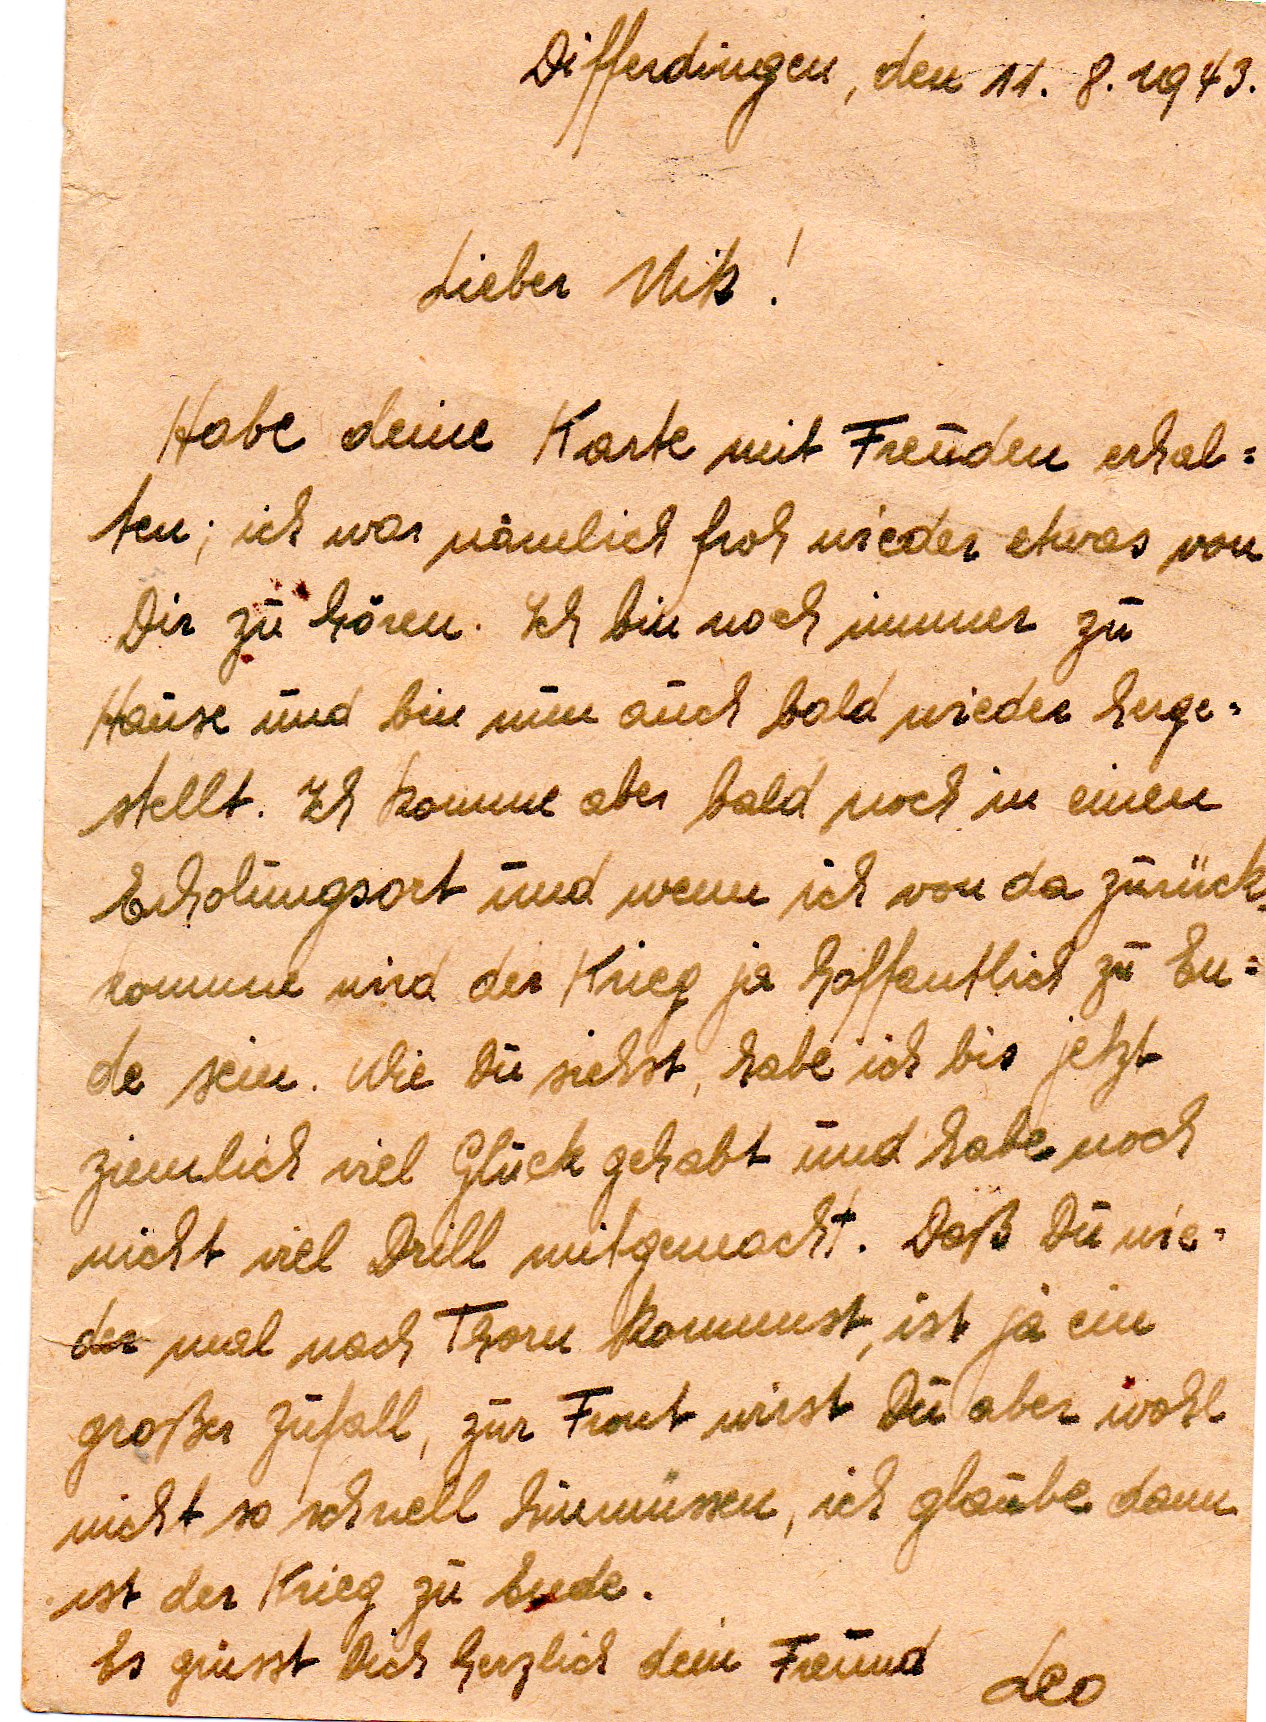 Differdingen, den 11. 8. 1943.
Lieber Nik!
Habe deine Karte mit Freuden erhal=
ten; ich war nämlich froh wieder etwas von
Dir zu hören. Ich bin noch immer zu
Hause und bin nun auch bald wieder herge=
stellt. Ich komme aber bald noch in einen
Erholungsort und wenn ich von da zurück=
komme wird der Krieg ja hoffentlich zu En=
de sein. Wie Du siehst, habe ich bis jetzt
ziemlich viel Glück gehabt und habe noch
nicht viel Drill mitgemacht. Daß Du wie=
der mal nach Thorn kommst, ist ja ein
großer Zufall, zur Front wirst Du aber wohl
nicht so schnell hinmüssen, ich glaube dann
ist der Krieg zu Ende.
Es grüsst Dich herzlich dein Freund
Leo